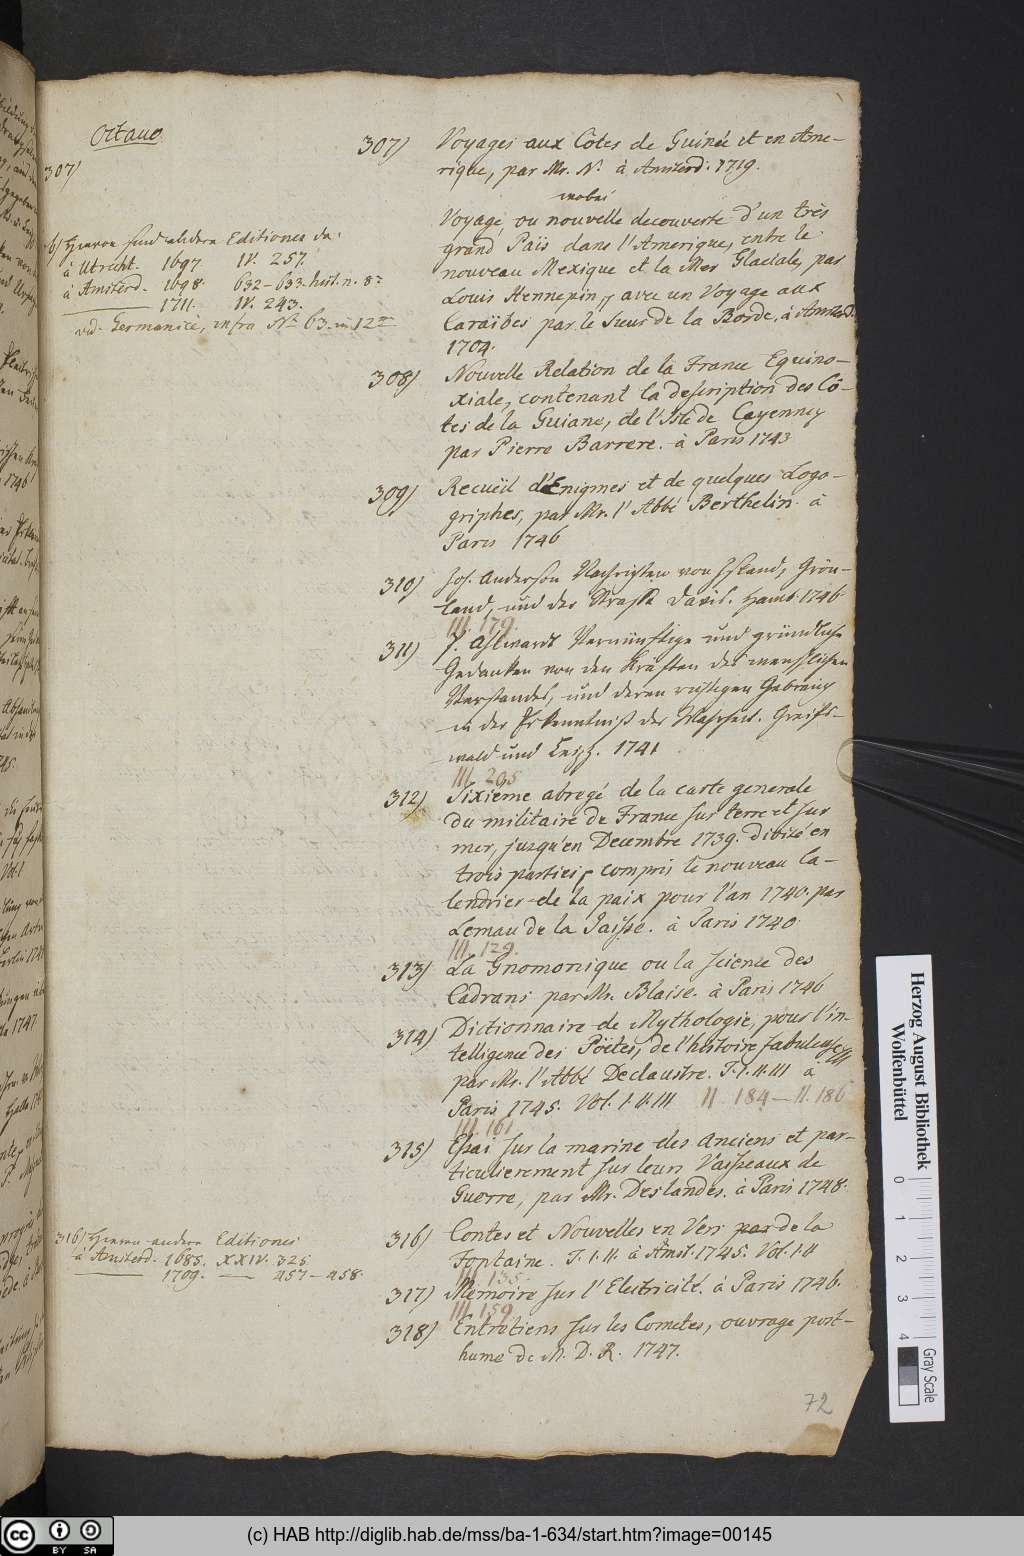 Octavo
307)
b) Hiervon sind andere Editiones da:
à Utrecht. 1697 IV. 257.
à Amsterd. 1698. 632-633. hist. n. 8°
——— 1711. IV. 243.
vid. Germanicè, infra N° 63. in 12°
307) Voyages aux Côtes de Guinée et en Ame-
rique, par Mr. N. à Amsterd: 1719.
wobei
Voyage, ou nouvelle decouverte d'un très
grand Païs dans l'Amerique, entre le
nouveau Mexique et la Mer Glaciale, par
Louis Hennepin, avec un Voyage aux
Caraïbes par le Sieur de la Borde, à Amsterd.
1704.
308) Nouvelle Relation de la France Equino-
xiale, contenant la description des Cô-
tes de la Guiane, de l'Isle de Cayenne,
par Pierre Barrere. à Paris 1743
309) Recueil d'Enigmes et de quelques Logo-
griphes, par Mr. l'Abbé Berthelin. à
Paris 1746
310) Joh. Anderson Nachrichten von Island, Grön-
land, und der Straße Davis. Hamb. 1746
III. 179.
311) P. Ahlwardt Vernünftige und gründliche
Gedanken von den Kräften des menschlichen
Verstandes, und deren richtigen Gebrauch
in der Erkenntniß der Wahrheit. Greifs-
wald und Leipz. 1741
III. 205
312) Sixième abregé de la carte generale
du militaire de France sur terre et sur
mer, jusqu'en Decembre 1739. divisé en
trois parties, compris le nouveau Ca-
lendrier de la paix pour l'an 1740. par
Lemau de la Jaisse. à Paris 1740
III. 129.
313) La Gnomonique ou la science des
Cadrans par Mr. Blaise. à Paris 1746
314) Dictionnaire de Mythologie, pour l'in-
telligence des Poëtes, de l'histoire fabuleuse
par Mr. l'Abbé Declaustre. T. I. II. III à
Paris 1745. Vol. I. II. III II. 184—II. 186
III. 161
315) Essai sur la marine des Anciens et par-
ticulierement sur leurs Vaisseaux de
Guerre, par Mr. Deslandes. à Paris 1748.
316) Hiervon andere Editiones
à Amsterd. 1685. XXIV. 325.
——— 1709. —— 457—458.
316) Contes et Nouvelles en Vers par de la
Fontaine. T. I. II. à Amst. 1745. Vol. I. II
III. 135.
317) Memoire sur l'Electricité. à Paris 1746.
III. 159
318) Entretiens sur les Cometes, ouvrage post-
hume de M. D. R. 1747.
72
Herzog August Bibliothek
Wolfenbüttel
0 1 2 3 4
Gray Scale
cc BY SA
(c) HAB http://diglib.hab.de/mss/ba-1-634/start.htm?image=00145